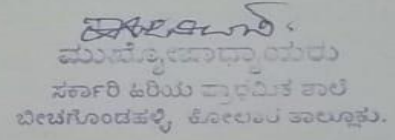 ಮುಖ್ಯೋಪಾಧ್ಯಾಯರು
ಸರ್ಕಾರಿ ಹಿರಿಯ ಪ್ರಾಥಮಿಕ ಶಾಲೆ
ಬೀಚಗೊಂಡಹಳ್ಳಿ ಕೋಲಾರ ತಾಲ್ಲೂಕು.